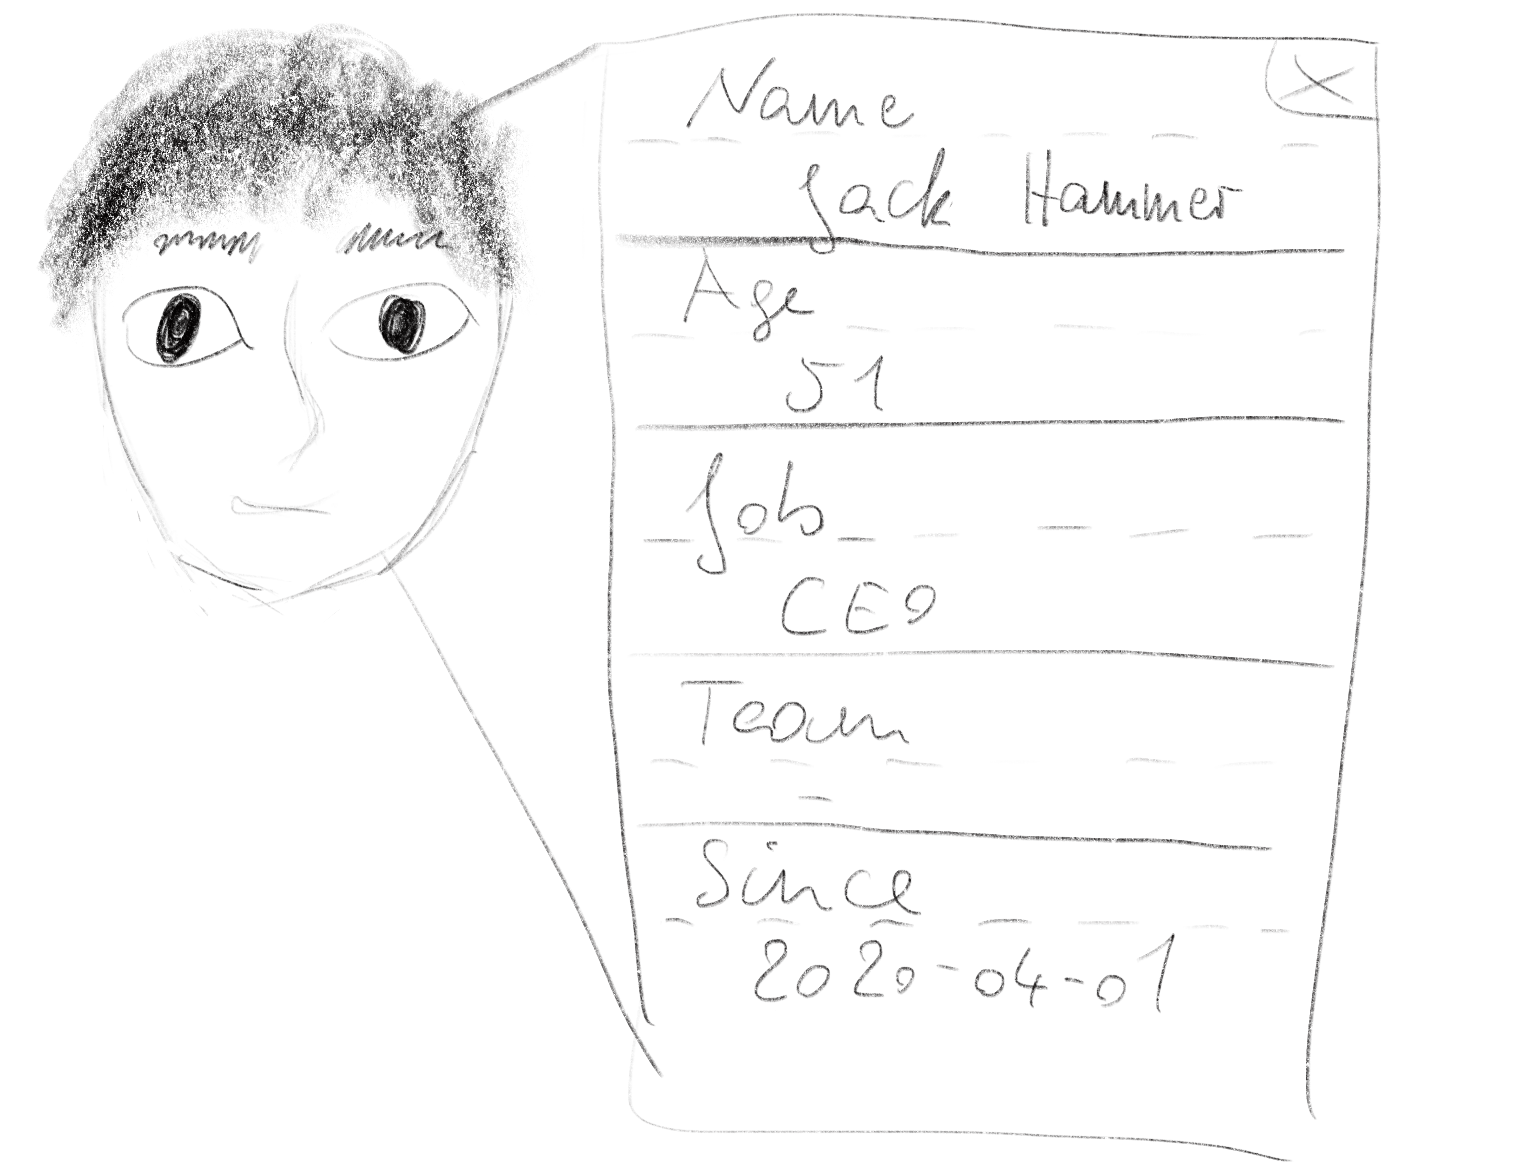 Name
Jack Hammer
Age
51
Job
CEO
Team
-
Since
2020-04-01